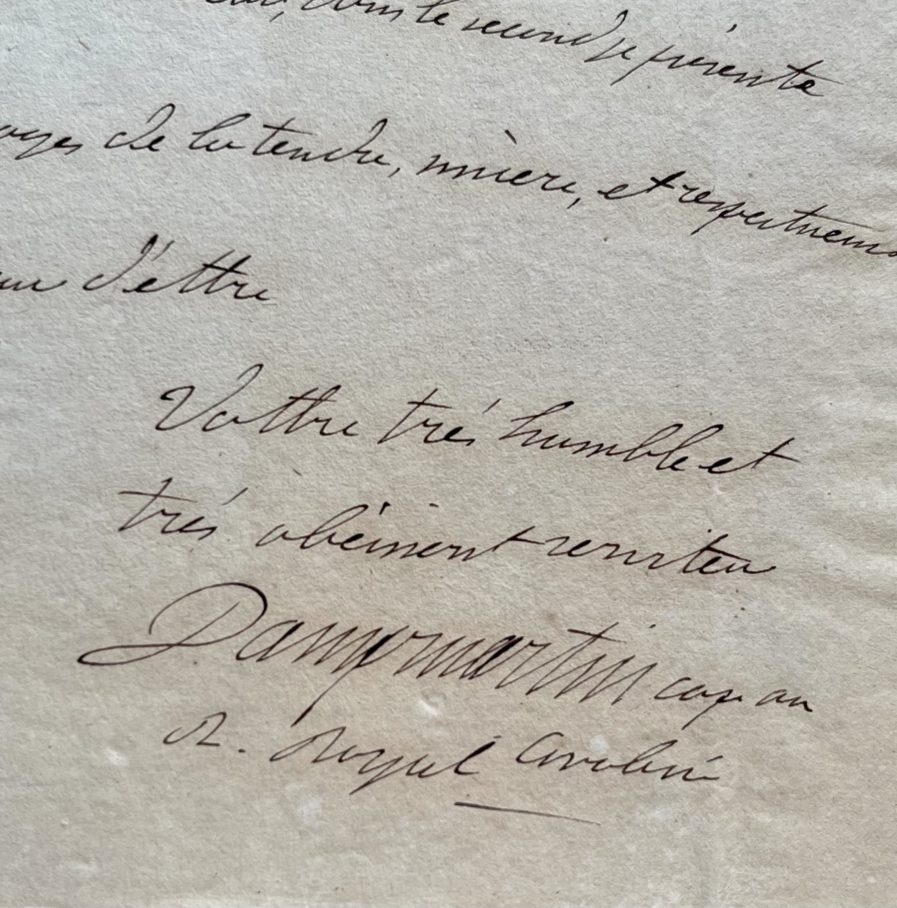 dans le second se présente
de la tendre, sincère, et respectueuse
d'ettre
Vottre trés humble et
trés obéissent serviteu
Dampmartin cap au
R. Royal